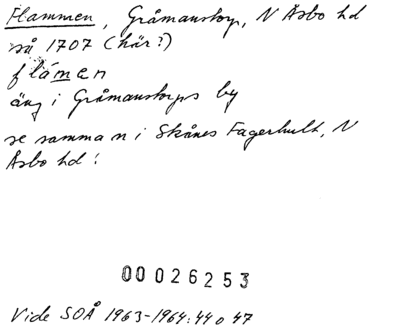 Flammen, Gråmanstorp, N Åsbo hd
så 1707 (här?)
flámen
äng i Gråmanstorps by
se samma n i Skånes Fagerhult, N
Åsbo hd!
00026253
Vide SOÅ 1963-1964:44 o 47